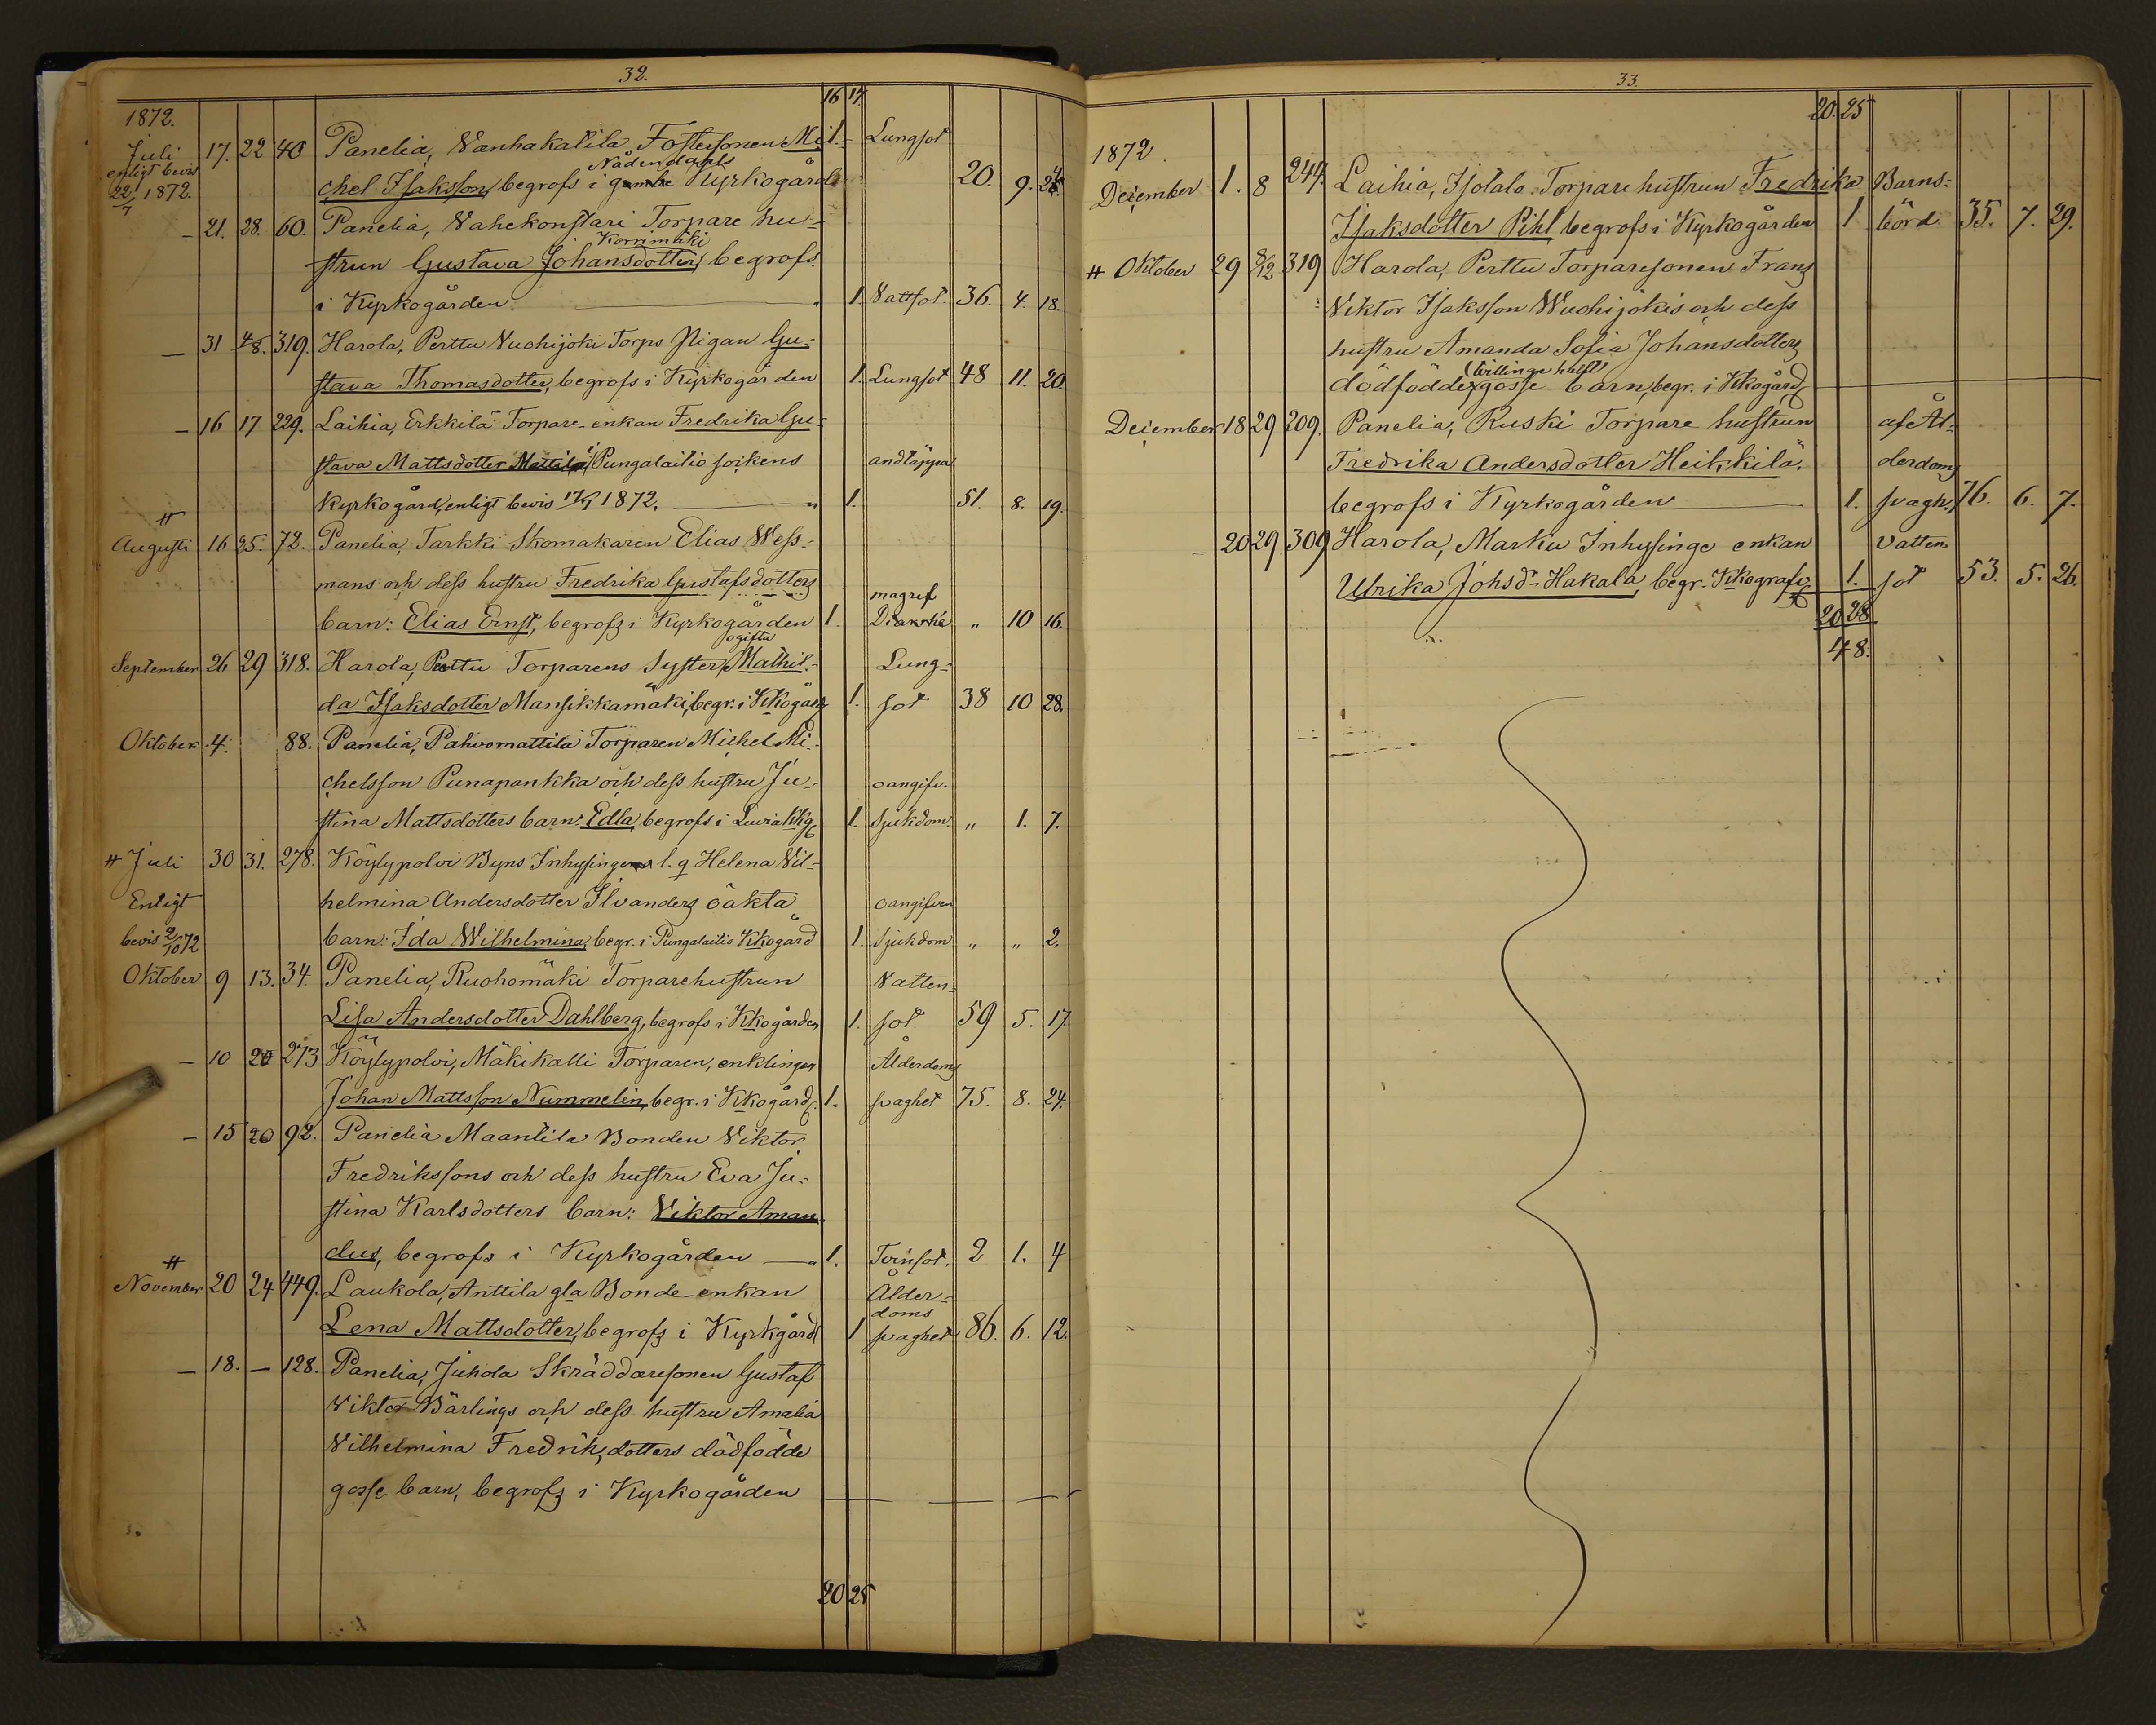 32.
16 17
1872.
Juli 17. 22 40 Panelia, Wanhakatila Fostersonen Mi- 1. Lungsot
enligt bevis Nådendahls
22/7 1872. chel Isaksson, begrofs i gamla Kyrkogård 20. 9. 24
— 21. 28. 60. Panelia, Vahekonstari Torpare hu-
Korrimäki
strun Gustava Johansdotter, begrofs
i Kyrkogården — 1. Vattsot. 36. 4. 18.
— 31 4/8. 319. Harola, Perttu Vuohijoki Torps Pigan Gu-
stava Thomasdotter, begrofs i Kyrkogården 1. Lungsot 48 11. 20.
— 16 17 229. Laihia, Erkkilä Torpare-enkan Fredrika Gu-
stava Mattsdotter Mattila, i Pungalaitio sokens andtäppa
Kyrkogård, enligt bevis 17/7 1872. — " 1. 51. 8. 19.
#
Augusti 16 25. 72. Panelia, Tarkki Skomakaren Elias Wess-
mans och dess hustru Fredrika Gustafsdotters
magref
barn: Elias Ernst, begrofs i Kyrkogården 1. Diarrhé " 10 16.
ogifta
September 26 29 318. Harola, Perttu Torparens Syster Mathil- Lung-
da Isaksdotter Mansikkamäki, begr. i Kkogård 1. sot 38 10 28.
Oktober 4. 88. Panelia, Pahvomattila Torparen Michel Mi-
chelsson Punapankka och dess hustru Ju- oangifv.
stina Mattsdotters barn: Edla, begrofs i Luvia Kkg 1. Sjukdom. " 1. 7.
# Juli 30 31. 278. Köylypolvi Byns Inhysinge l. q Helena Vil-
Enligt helmina Andersdotter Ilvanders oäkta oangifven
bevis 2/10 72 barn: Ida Wilhelmina, begr. i Pungalaitio Kkogård 1. Sjukdom " " 2.
Oktober 9 13. 34. Panelia, Ruohomäki Torparehustrun Vatten-
Lisa Andersdotter Dahlberg, begrofs i Kkogården 1. sot 59 5. 17
— 10 20 273 Köylypolvi, Mäkikalli Torparen, enklingen Ålderdoms
Johan Mattsson Nummelin, begr. i Kkogård. 1. svaghet 75. 8. 24.
— 15 20 92. Panelia Maantila Bonden Viktor
Fredrikssons och dess hustru Eva Ju-
stina Karlsdotters barn: Viktor Aman
dus, begrofs i Kyrkogården — " 1. Tvinsot. 2 1. 4
#
November 20 24 449. Laukola, Anttila gla Bonde-enkan Ålder-
doms
Lena Mattsdotter, begrofs i Kyrkgård 1 svaghet 86. 6. 12.
— 18. — 128. Panelia, Juhola Skräddaresonen Gustaf
Viktor Bärlings och dess hustru Amalia
Vilhelmina Fredriksdotters dödfödde
gosse barn, begrofs i Kyrkogården
20 25
33.
20. 25
1872.
December 1. 8 244. Laihia, Isotalo Torpare hustrun Fredrika Barns-
Isaksdotter Pihl, begrofs i Kyrkogården 1 börd 35. 7. 29.
# Oktober 29 8/12 319 Harola, Perttu Torparesonen Frans
Viktor Isaksson Wuohijokis och dess
hustru Amanda Sofia Johansdotters
(tvillinge hälft)
dödfödde gosse barn, begr. i Kkogård
December 18 29 209. Panelia, Ruski Torpare hustrun af Ål-
Fredrika Andersdotter Heikkilä, derdoms
begrofs i Kyrkogården — 1. svagh. 76. 6. 7.
— 20 29 309 Harola, Marku Inhysinge enkan Vatten
Ulrika Johsdr Hakala, begr. Kkograf 1. sot 53. 5. 26.
20 28
48.